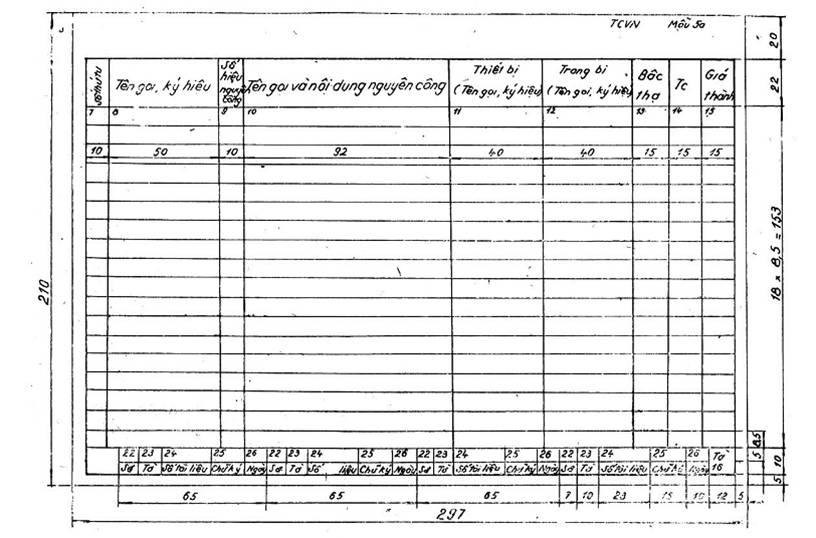 TCVN Mẫu 5a
Số thứ tự
Tên gọi, ký hiệu
Số hiệu nguyên công
Tên gọi và nội dung nguyên công
Thiết bị (Tên gọi, ký hiệu)
Trang bị (Tên gọi, ký hiệu)
Bậc thợ
Tc
Giá thành
7 8 9 10 11 12 13 14 15
10 50 10 92 40 40 15 15 15
22 23 24 25 26 22 23 24 25 26 22 23 24 25 26 22 23 24 25 26 Tờ
Sđ Tờ Số tài liệu Chữ ký Ngày Sđ Tờ Số liệu Chữ ký Ngày Sđ Tờ Số tài liệu Chữ ký Ngày Sđ Tờ Số tài liệu Chữ ký Ngày 16
65 65 65 7 10 23 15 10 12 5
297
210
20
22
18 x 8,5 = 153
8,5
5 10
5